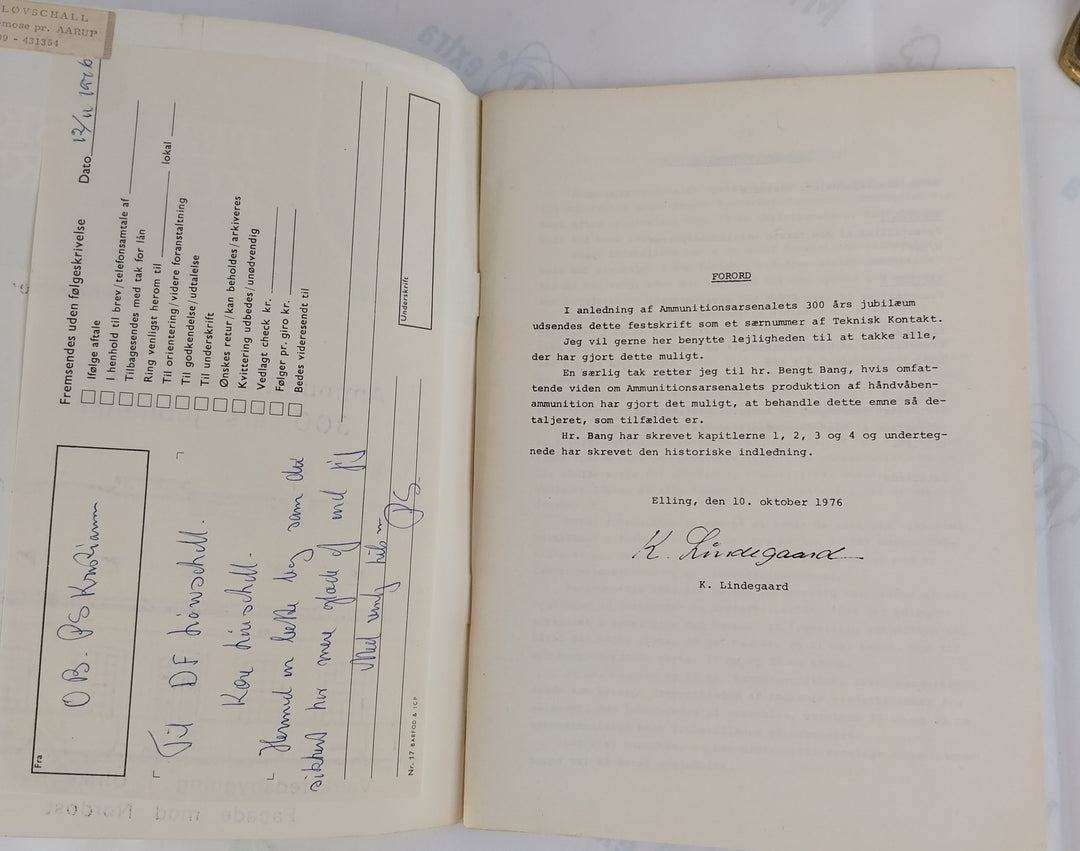 LØVSCHALL
mose pr. AARUP
09 - 431354
Fremsendes uden følgeskrivelse Dato 12/11 1976
Ifølge aftale
I henhold til brev/telefonsamtale af
Tilbagesendes med tak for lån
Ring venligst herom til lokal
Til orientering/videre foranstaltning
Til godkendelse/udtalelse
Til underskrift
Ønskes retur/kan beholdes/arkiveres
Kvittering udbedes/unødvendig
Vedlagt check kr.
Følger pr. giro kr.
Bedes videresendt til
Underskrift
Fra
OB. PS Kristiansen
Til DF Løvschall.
Kære Løvschall.
Hermed en lille bog som du
sikkert har mere glæde af end jeg
Med venlig hilsen
PS
Nr. 17 BARFOD & ICP
Facade mod Nordost
FORORD
I anledning af Ammunitionsarsenalets 300 års jubilæum
udsendes dette festskrift som et særnummer af Teknisk Kontakt.
Jeg vil gerne her benytte lejligheden til at takke alle,
der har gjort dette muligt.
En særlig tak retter jeg til hr. Bengt Bang, hvis omfat-
tende viden om Ammunitionsarsenalets produktion af håndvåben-
ammunition har gjort det muligt, at behandle dette emne så de-
taljeret, som tilfældet er.
Hr. Bang har skrevet kapitlerne 1, 2, 3 og 4 og underteg-
nede har skrevet den historiske indledning.
Elling, den 10. oktober 1976
K. Lindegaard
K. Lindegaard
extra